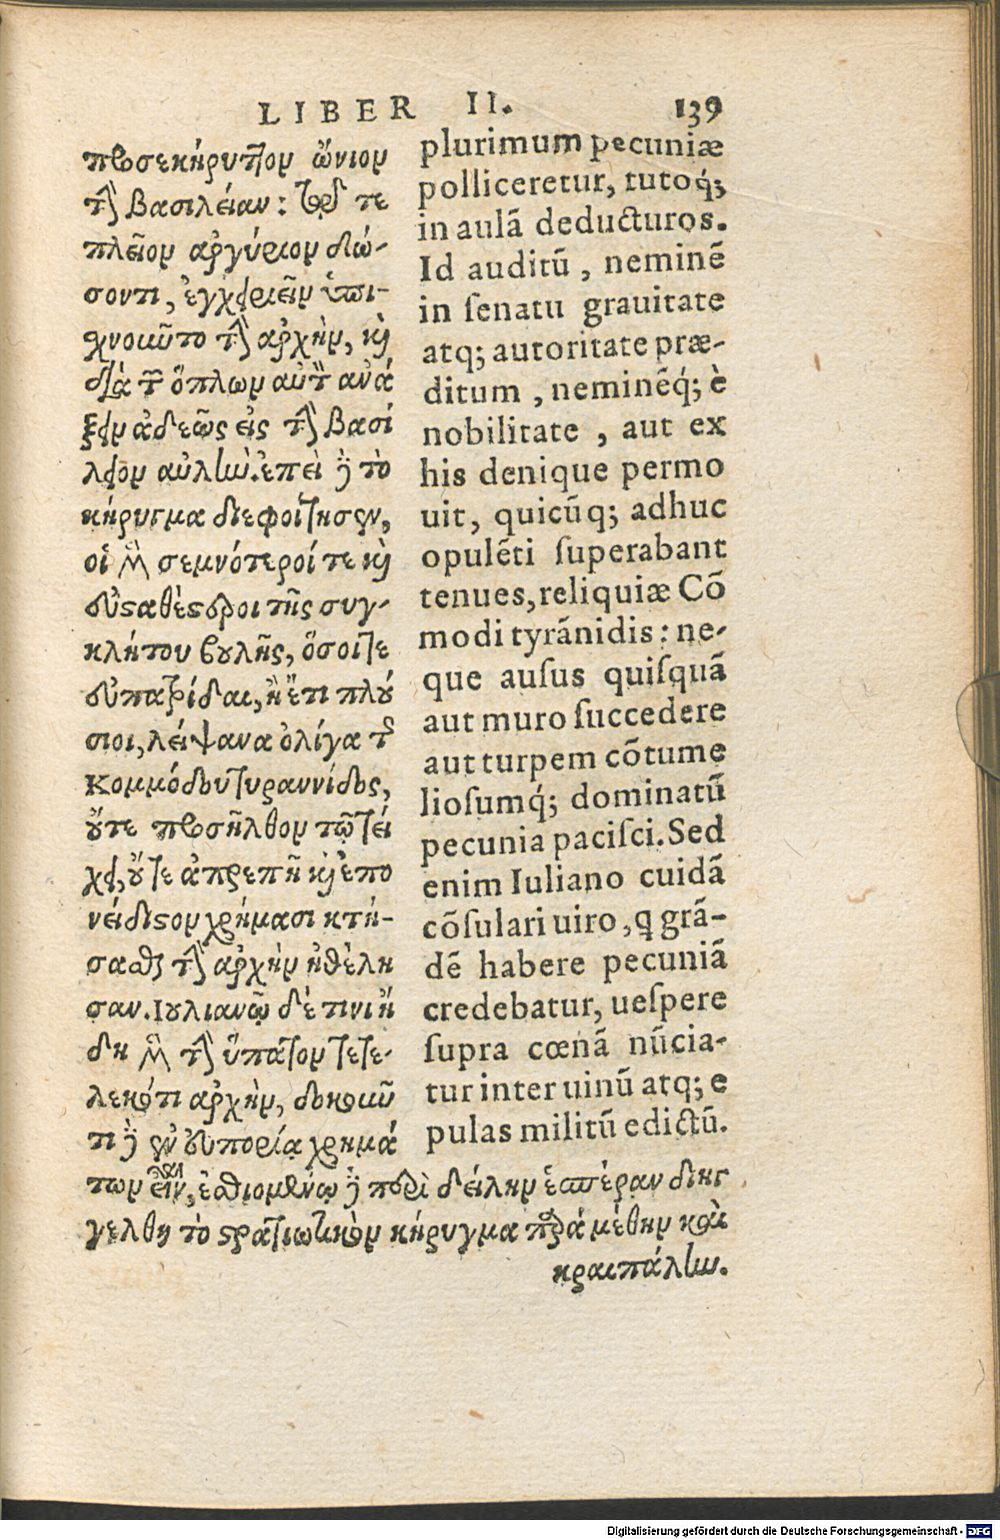 LIBER II. 139
προσεκήρυττον ὤνιον
τὴν βασιλείαν: τῷ τε
πλεῖον ἀργύριον δώ-
σοντι, ἐγχειριεῖν ὑπι-
χνοῦντο τὴν ἀρχὴν, καὶ
διὰ τῶν ὅπλων αὐτῶν ἀνά
ξειν ἀδεῶς εἰς τὴν βασί
λειον αὐλὴν. ἐπεὶ δὲ τὸ
κήρυγμα διεφοίτησεν,
οἱ μὲν σεμνότεροί τε καὶ
εὐσταθέστεροι τῆς συγ-
κλήτου βουλῆς, ὅσοι τε
εὐπατρίδαι, ἢ ἔτι πλού
σιοι, λείψανα ὀλίγα τῆς
Κομμόδου τυραννίδος,
οὔτε προσῆλθον τῷ τεί
χει, οὔτε ἀπρεπῆ καὶ ἐπο
νείδιστον χρήμασι κτή-
σασθαι τὴν ἀρχὴν ἠθέλη
σαν. Ιουλιανῷ δέ τινι ἤ
δη μὲν τὴν ὕπατον τετε-
λεκότι ἀρχὴν, δοκοῦν
τι δὲ ἐν εὐπορίᾳ χρημά
των εἶναι, ἐσθιομένῳ δὲ περὶ δείλην ἑσπέραν διηγ
γέλθη τὸ στρατιωτικὸν κήρυγμα παρὰ μέθην καὶ
κραιπάλην.
plurimum pecuniæ
polliceretur, tutoq́;
in aulā deducturos.
Id auditū, neminē
in ſenatu grauitate
atq; autoritate præ-
ditum, neminēq́; è
nobilitate, aut ex
his denique permo
uit, quicūq; adhuc
opulēti ſuperabant
tenues, reliquiæ Cō
modi tyrānidis: ne-
que auſus quiſquā
aut muro ſuccedere
aut turpem cōtume
lioſumq́; dominatū
pecunia paciſci. Sed
enim Iuliano cuidā
cōſulari uiro, q grā-
dē habere pecuniā
credebatur, ueſpere
ſupra cœnā nūcia-
tur inter uinū atq; e
pulas militū edictū.
Digitalisierung gefördert durch die Deutsche Forschungsgemeinschaft - DFG